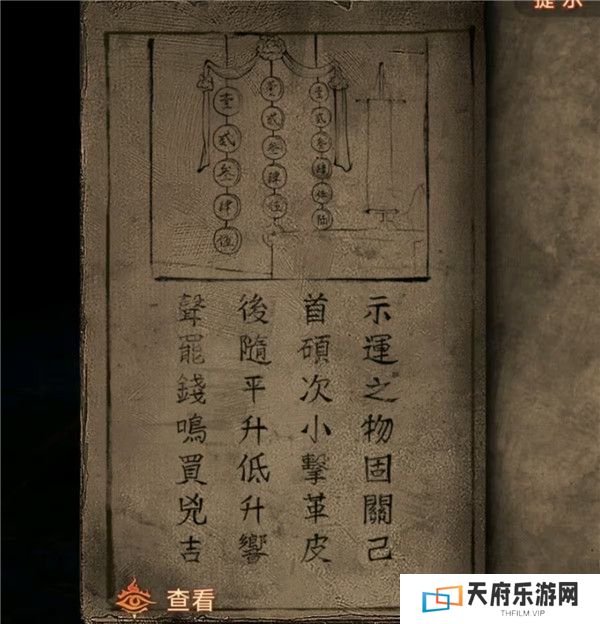 提示
壹貳叁肆伍陸
壹貳叁肆伍
壹貳叁肆伍
示運之物固關己
首碩次小擊革皮
後隨平升低升響
聲罷錢鳴買兇吉
查看
天府乐游网
THFILM.VIP